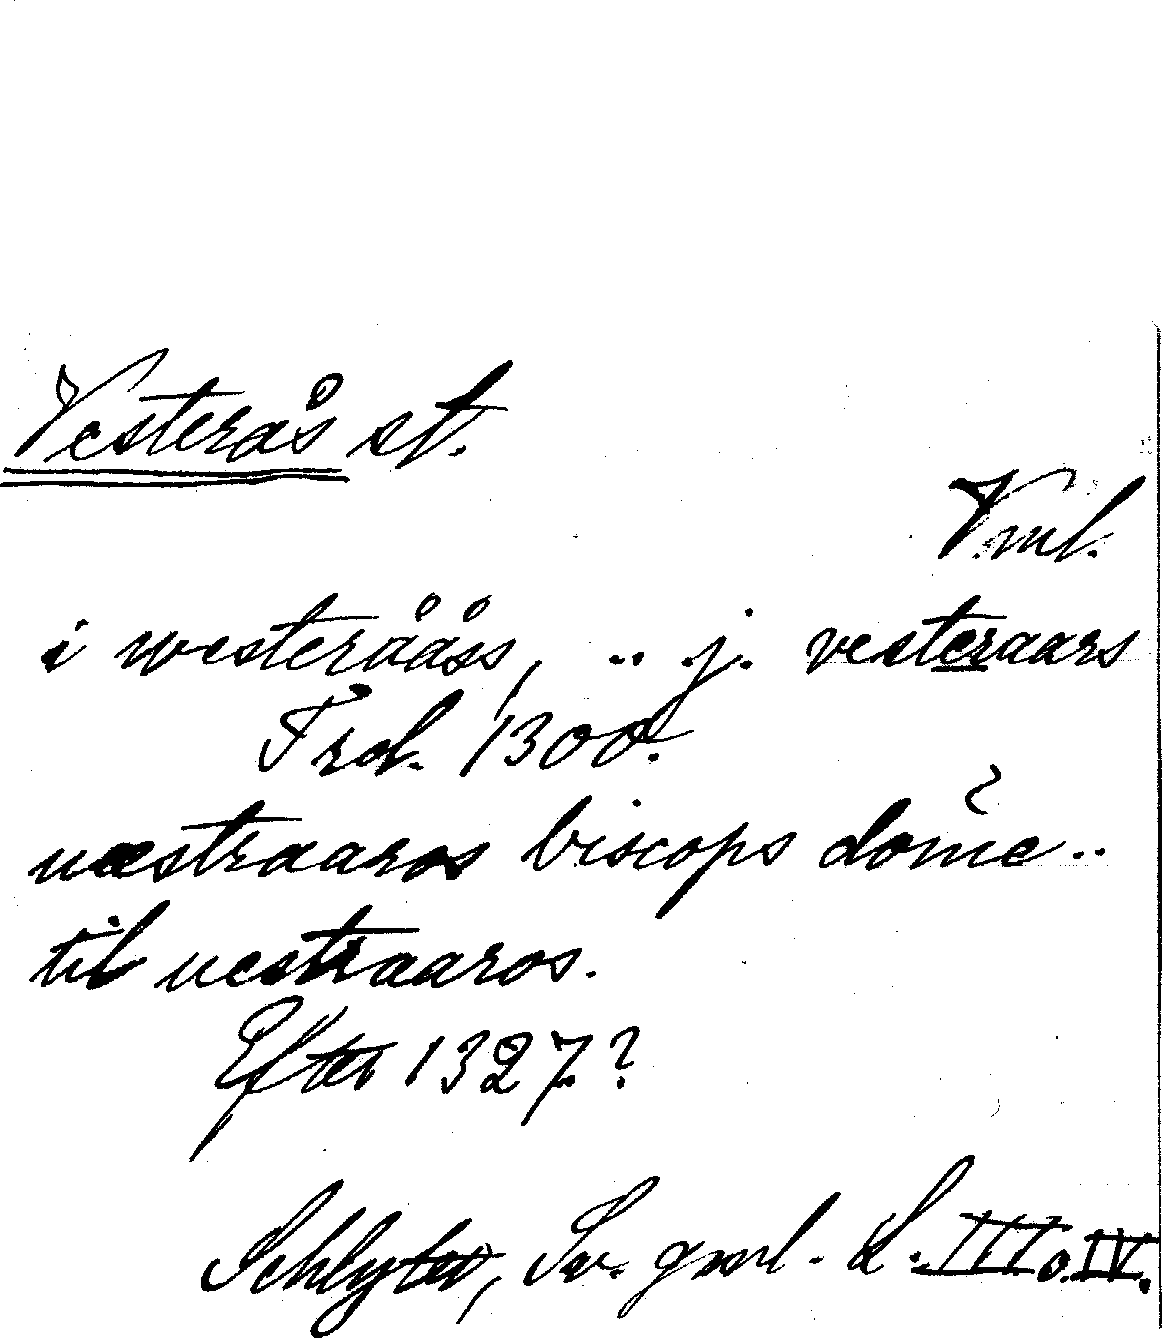 Vesterås st.
Vml.
i westerååss, .. j. vesteraars
Trol. 1300.
uæstraaros biscops dom̃e ..
til uestraaros.
Efter 1327?
Schlyter, Sv. gml. L. III o. IV.